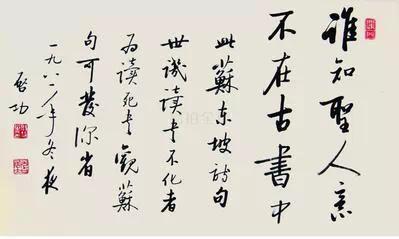 誰知聖人意
不在古書中
此蘇東坡詩句
世譏讀書不化者
為讀死書觀蘇
句可發深省
一九八二年冬夜
啓功